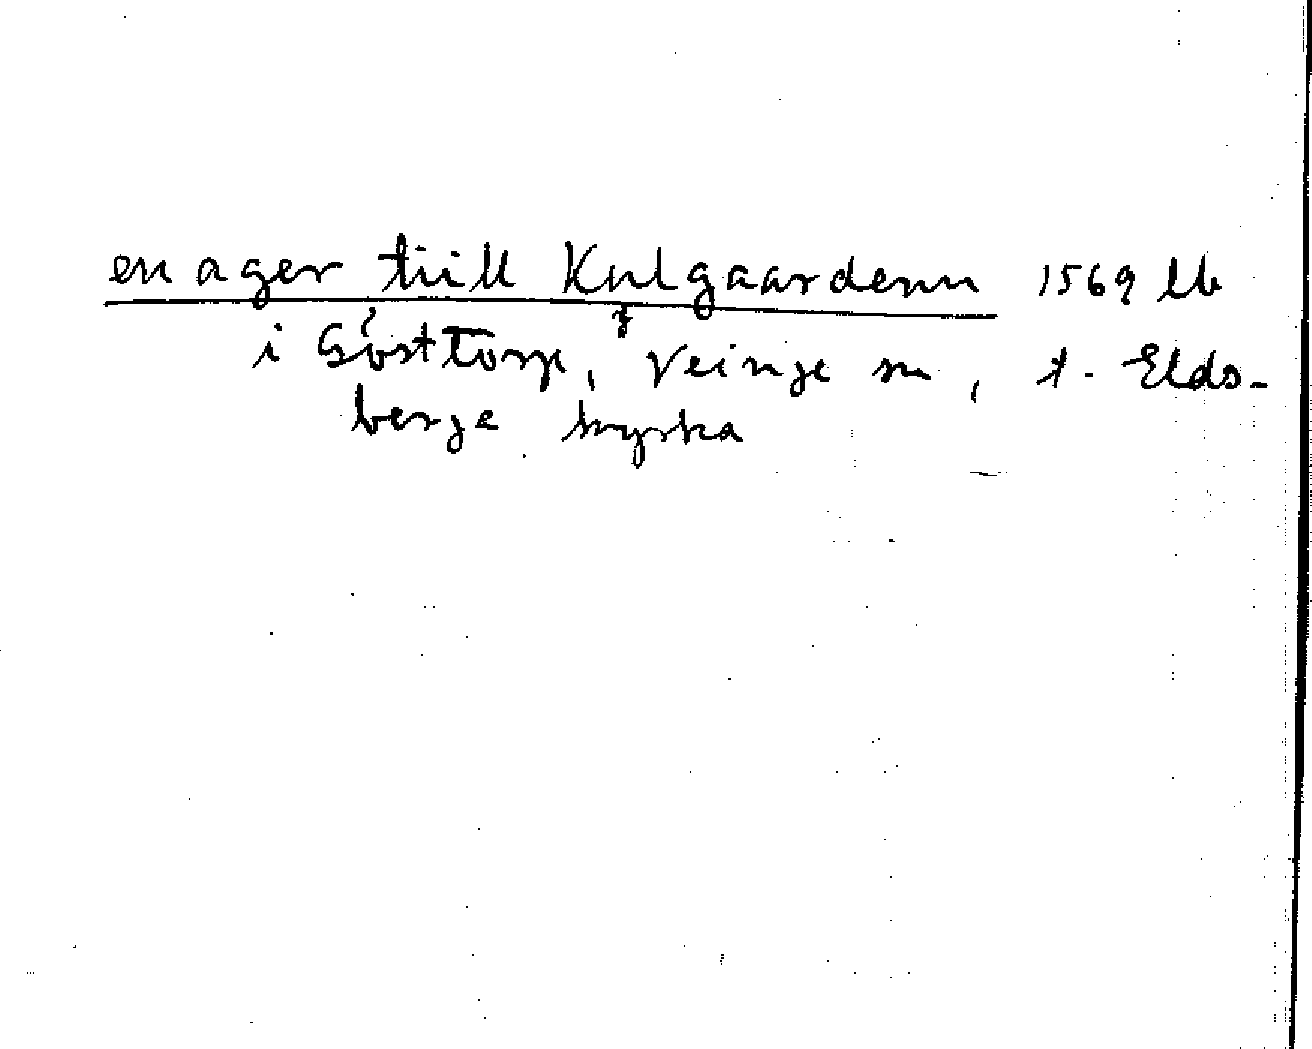 en ager tiill Knlgaardenn 1569 lb
i Gósttorp, Veinge sn, t. Elds-
berga kyrka